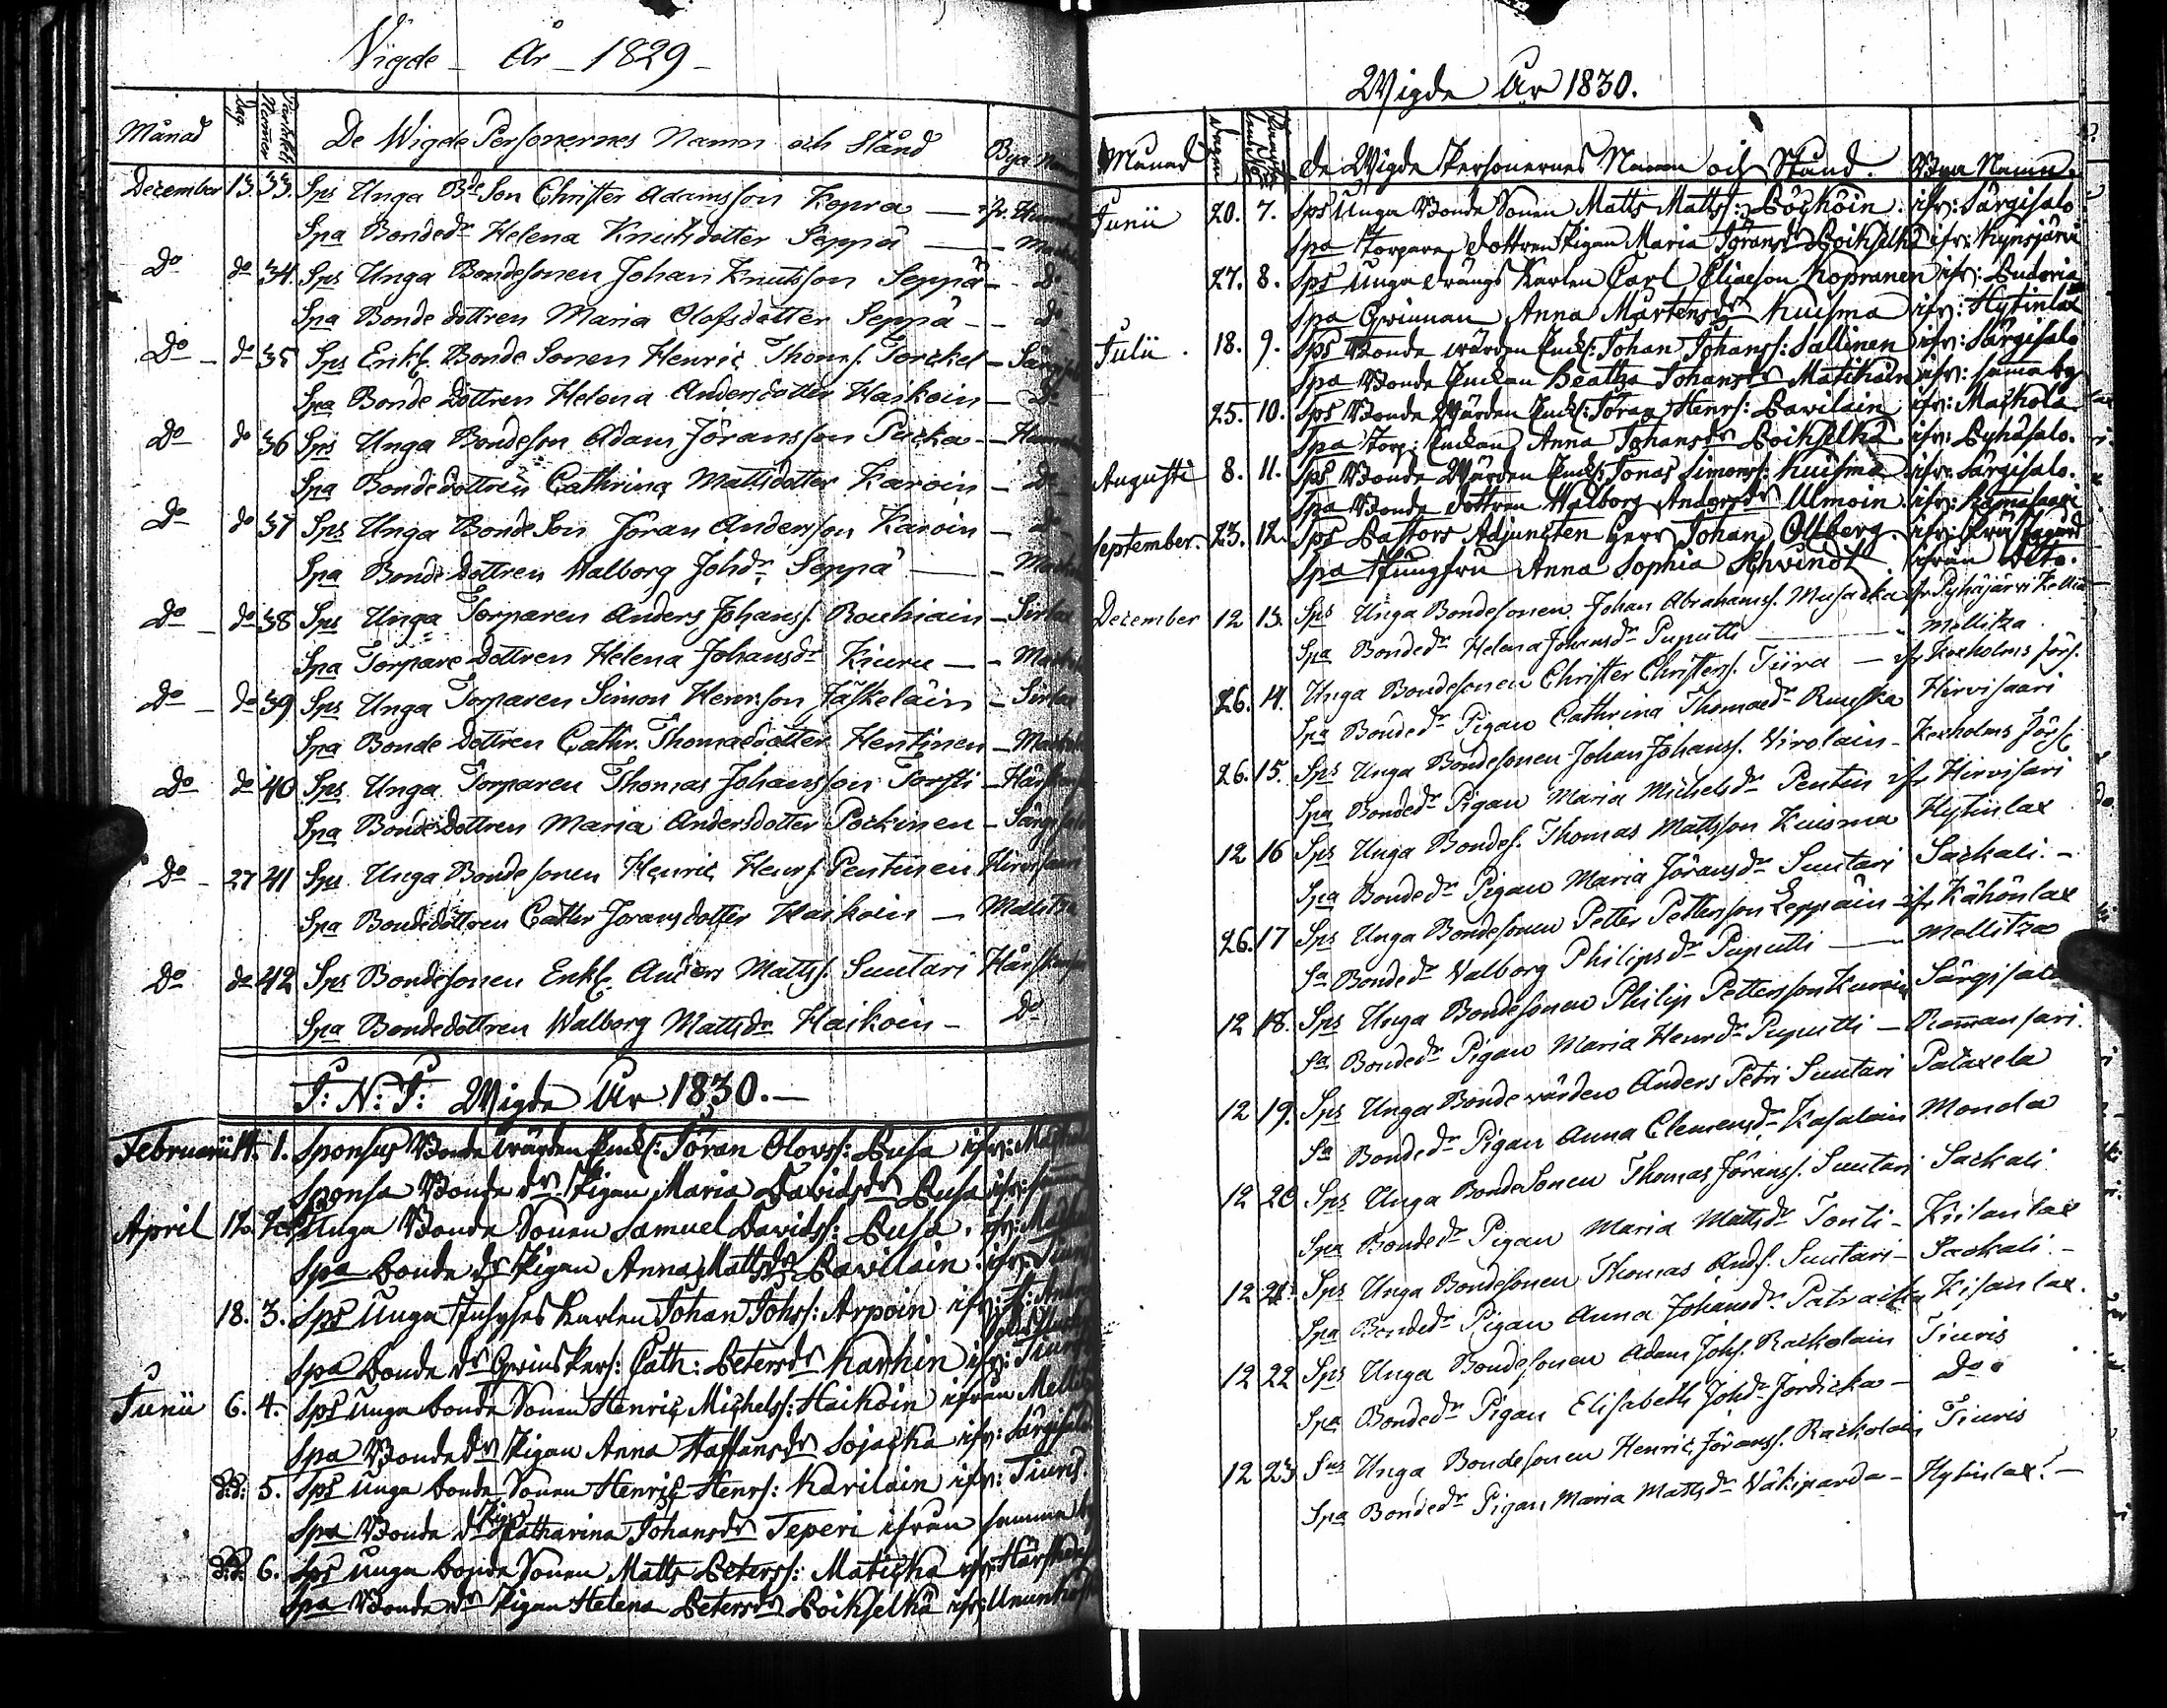 Vigde År 1829
Månad Dag De Wigde Personernes Namn och Stånd Bya
December 13. 33. Sps Unga Bde Son Christer Adamsson Kopra — ifr.
Spa Bondedr Helena Knutsdotter Seppä —
Do do 34. Sps Unga Bondesonen Johan Knutsson Seppä — Do
Spa Bonde dottren Maria Olofsdotter Seppä — Do
Do do 35 Sps Enkl. Bonde Sonen Henric Thoms. Torckel —
Spa Bonde Dottren Helena Andersdotter Haikoin — Do
Do do 36 Sps Unga Bondeson Adam Jöransson Pucka —
Spa Bondedottren Cathrina Mattsdotter Karoin — Do
Do do 37 Sps Unga Bonde Son Jöran Andersson Karoin — Do
Spa Bonde Dottren Walborg Johdr Seppä —
Do do 38 Sps Unga Torparen Anders Johanss. Rouhiain —
Spa Torpare Dottren Helena Johansdr Kiuru —
Do do 39 Sps Unga Torparen Simon Henrsson Jäskeläin —
Spa Bonde Dottren Cathr. Thomasdotter Hentinen —
Do do 40 Sps Unga Torparen Thomas Johansson Torsti —
Spa Bondedottren Maria Andersdotter Pockinen —
Do 27 41 Sps Unga Bondesonen Henric Henrs. Pentinen Hirvisaari
Spa Bondedottren Cathr Joransdotter Haikoin — Mellitza
Do do 42 Sps Bondesonen Enkl. Anders Mattss. Suutari
Spa Bondedottren Walborg Mattsdr Haikoin — Do
J: N: J: Wigde År 1830.—
Februarii 14. 1. Sponsus Bonde wärden Enkl: Jöran Olovss: Pusa ifr:
Sponsa Bonde dr Pigan Maria Davidsdr Pusa ifr:
April 12. 2. Sps Unga Bonde Sonen Samuel Davidss: Pusa. ifr:
Spa bonde dr Pigan Anna Mattsdr Pavilain ifr:
18. 3. Sps Unga Inhyses Karlen Johan Johss: Arpoin ifr:
Spa bonde dr Qvinspers: Cath: Petersdr Karhin ifr:
Junii 6. 4. Sps unga bonde Sonen Henric Michelss: Haikoin ifrån
Spa Bonde dr Pigan Anna Staffansdr Sojacka ifr:
d:d: 5. Sps unga bonde Sonen Henric Henrs: Karilain ifr: Tiuris.
Spa Bonde dr Pig: Catharina Johansdr Teperi ifrån samma by
d:d: 6. Sps unga bonde Sonen Matts Peterss: Maticka ifr:
Spa Bonde dr Pigan Helena Petersdr Poikselkä ifr:
Wigde År 1830.
Månad De Wigde Personernes Namn och Stånd. Bya Namn.
Junii 20. 7. Sps Unga Bonde Sonen Matts Mattss: Pöcköin. ifr: Särgisalo
Spa Torpare dottren Pigan Maria Jöransdr Poikselkä ifr: Kynsjärvi
27. 8. Sps Unga drängs Karlen Carl Eliaeson Kopranen ifr:
Spa Qwinnan Anna Mårtensdr Kuisma ifr: Hytinlax
Julii. 18. 9. Sps Bonde wärden Enckl: Johan Johanss: Sallinen ifr: Särgisalo
Spa Bonde Enckan Beattza Johansdr Matikain ifr: samma by
25. 10. Sps Bonde Wärden Enckl: Jöran Henrs: Pavilain ifr: Mackola
Spa Torp: Enckan Anna Johansdr Poikselkä ifr: Pyhäsalo.
Augusti 8. 11. Sps Bonde Wärden Enckl: Jonas Simonss: Kuisma ifr: Särgisalo.
Spa Bonde dottren Walborg Andersdr Ulmoin ifr:
September. 23. 12. Sps Pastors Adjuncten Herr Johan Ollberg. ifr:
Spa Jungfru Anna Sophia Schvindt ifrån dito.
December 12 13. Sps Unga Bondesonen Johan Abrahamss. Musacka fr Pyhäjärvi
Spa Bondedr Helena Johansdr Puputti — Mellitza
26. 14. Unga Bondesonen Christer Christerss. Tiira — ifr Kexholms förs.
Spa Bondedr Pigan Cathrina Thomaedr Ruuska Hirvisaari
26. 15. Sps Unga Bondesonen Johan Johanss. Virolain — Kexholms Förs.
Spa Bondedr Pigan Maria Michelsdr Pentin ifr Hirvisari
12 16 Sps Unga Bondes. Thomas Mattsson Kuisma Hytinlax
Spa Bondedr Pigan Maria Jöransdr Suutari Sackali. —
26. 17 Sps Unga Bondesonen Petter Pettersson Leppäin ifr Kähönlax
Sa Bondedr Valborg Philipsdr Puputti — Mellitza
12 18. Sps Unga Bondesonen Philip Pettersson Särgisalo
Sa Bondedr Pigan Maria Henrdr Puputti — Romansari.
12 19. Sps Unga Bondevärden Anders Petri Suutari Pataxela
Sa Bondedr Pigan Anna Clemensdr Kasalain Monola
12 20 Sps Unga Bondesonen Thomas Jöranss. Suutari Sackali
Spa Bondedr Pigan Maria Mattsdr Tonti — Kiilanlax
12 21. Sps Unga Bondesonen Thomas Ands. Suutari — Sackali. —
Spa Bondedr Pigan Anna Johansdr. Patraicka Kisanlax.
12 22 Sps Unga Bondesonen Adam Johs. Rackolain Tiuris
Spa Bondedr Pigan Elisabeth Johdr Jordicka — Do
12 23 Sps Unga Bondesonen Henric Jöranss. Rackolain Tiuris
Spa Bondedr Pigan Maria Mattsdr Väkiparda — Hytinlax. —